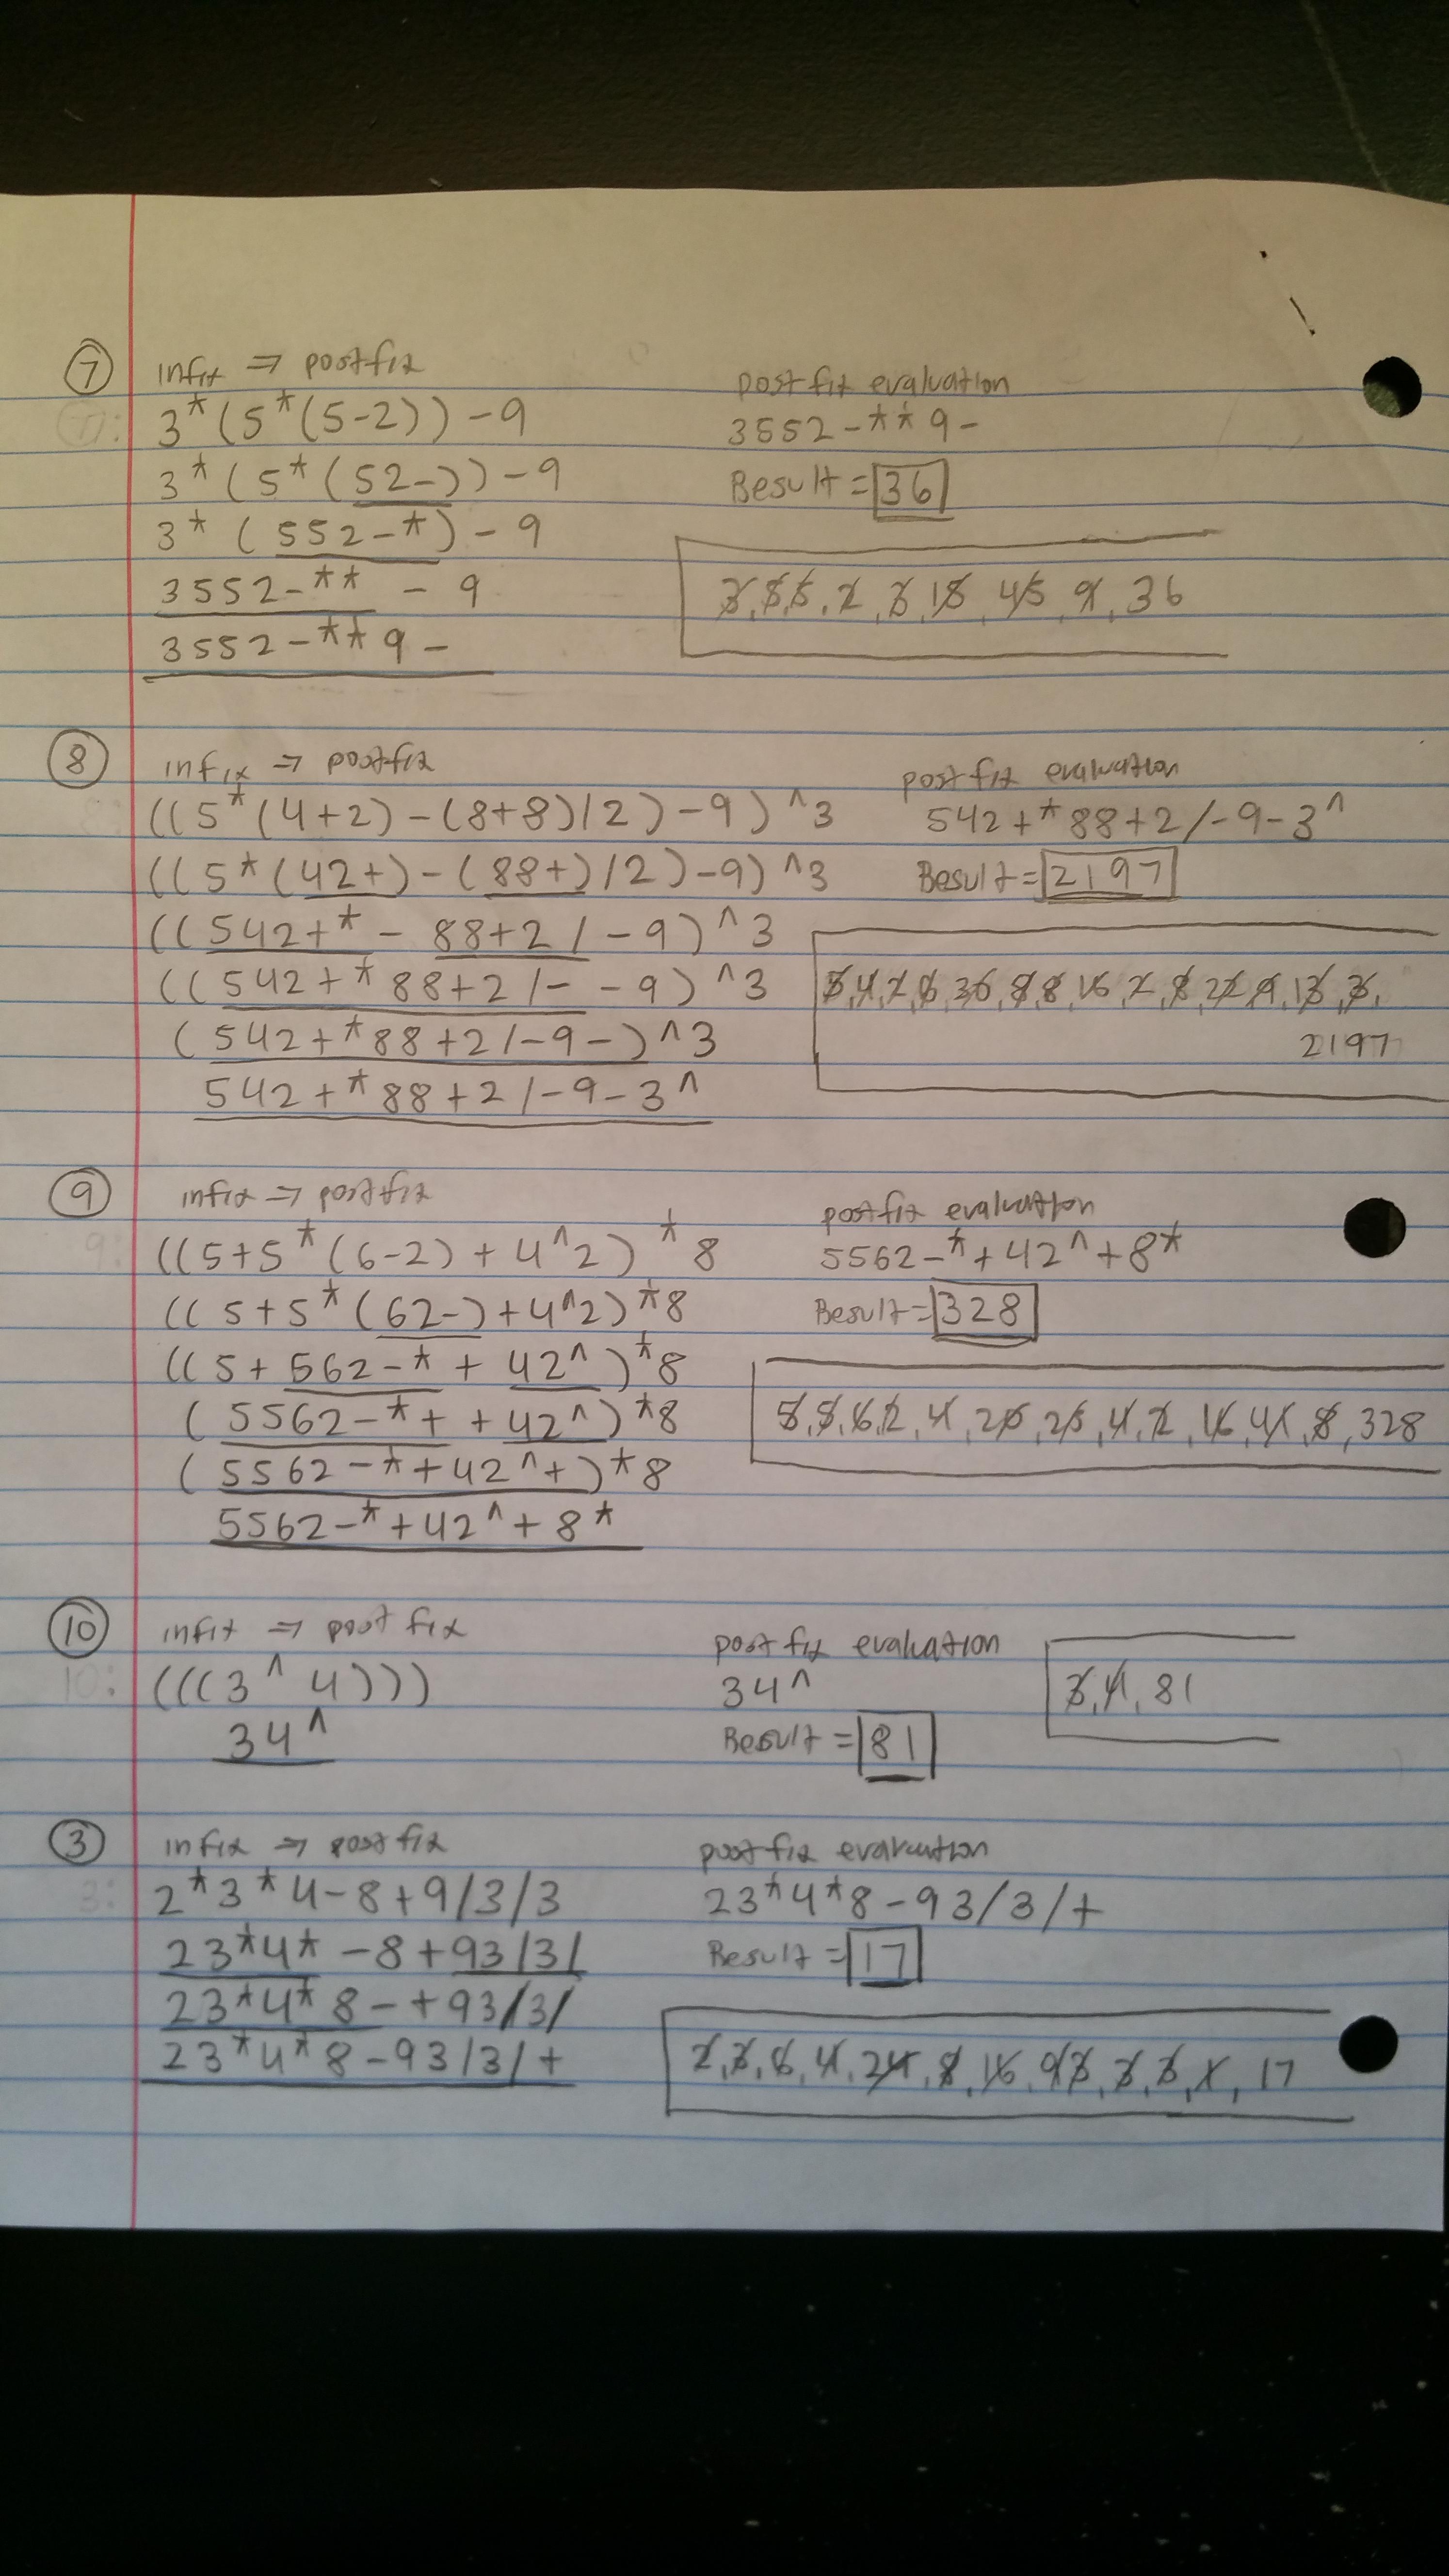 7
infix => postfix
3*(5*(5-2))-9
3*(5*(52-))-9
3*(552-*)-9
3552-** - 9
3552-**9-
postfix evaluation
3552-**9-
Result = 36
3,5,5,2,3,15,45,9,36
8
infix => postfix
((5*(4+2)-(8+8)/2)-9)^3
((5*(42+)-(88+)/2)-9)^3
((542+* - 88+2/-9)^3
((542+*88+2/- -9)^3
(542+*88+2/-9-)^3
542+*88+2/-9-3^
postfix evaluation
542+*88+2/-9-3^
Result = 2197
5,4,2,6,30,8,8,16,2,8,22,9,13,3,
2197
9:
9
infix => postfix
((5+5*(6-2)+4^2)*8
((5+5*(62-)+4^2)*8
((5+562-* + 42^)*8
(5562-*+ +42^)*8
(5562-*+42^+)*8
5562-*+42^+8*
postfix evaluation
5562-*+42^+8*
Result = 328
5,5,6,2,4,20,25,4,2,16,41,8,328
10
10:
infix => postfix
(((3^4)))
34^
postfix evaluation
34^
Result = 81
3,4,81
3
3:
infix => postfix
2*3*4-8+9/3/3
23*4* -8+93/3/
23*4*8-+93/3/
23*4*8-93/3/+
postfix evaluation
23*4*8-93/3/+
Result = 17
2,3,6,4,24,8,16,9,3,3,3,1,17